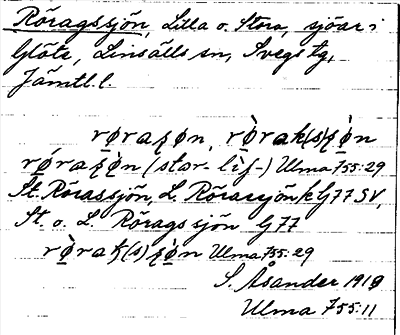 Röragssjön, Lilla o. Stora, sjöar i
Glöte, Linsälls sn, Svegs tg,
Jämtl. l.
røraʂøn, rørak(s)ʂøn
røraʂøn (stor- liʃ-) Ulma 755:29
St. Rörassjön, L. Rörassjön k G77 SV,
St. o. L. Röragssjön G77
rørak(s)ʂøn Ulma 755:29
S. Åsander 1919
Ulma 755:11